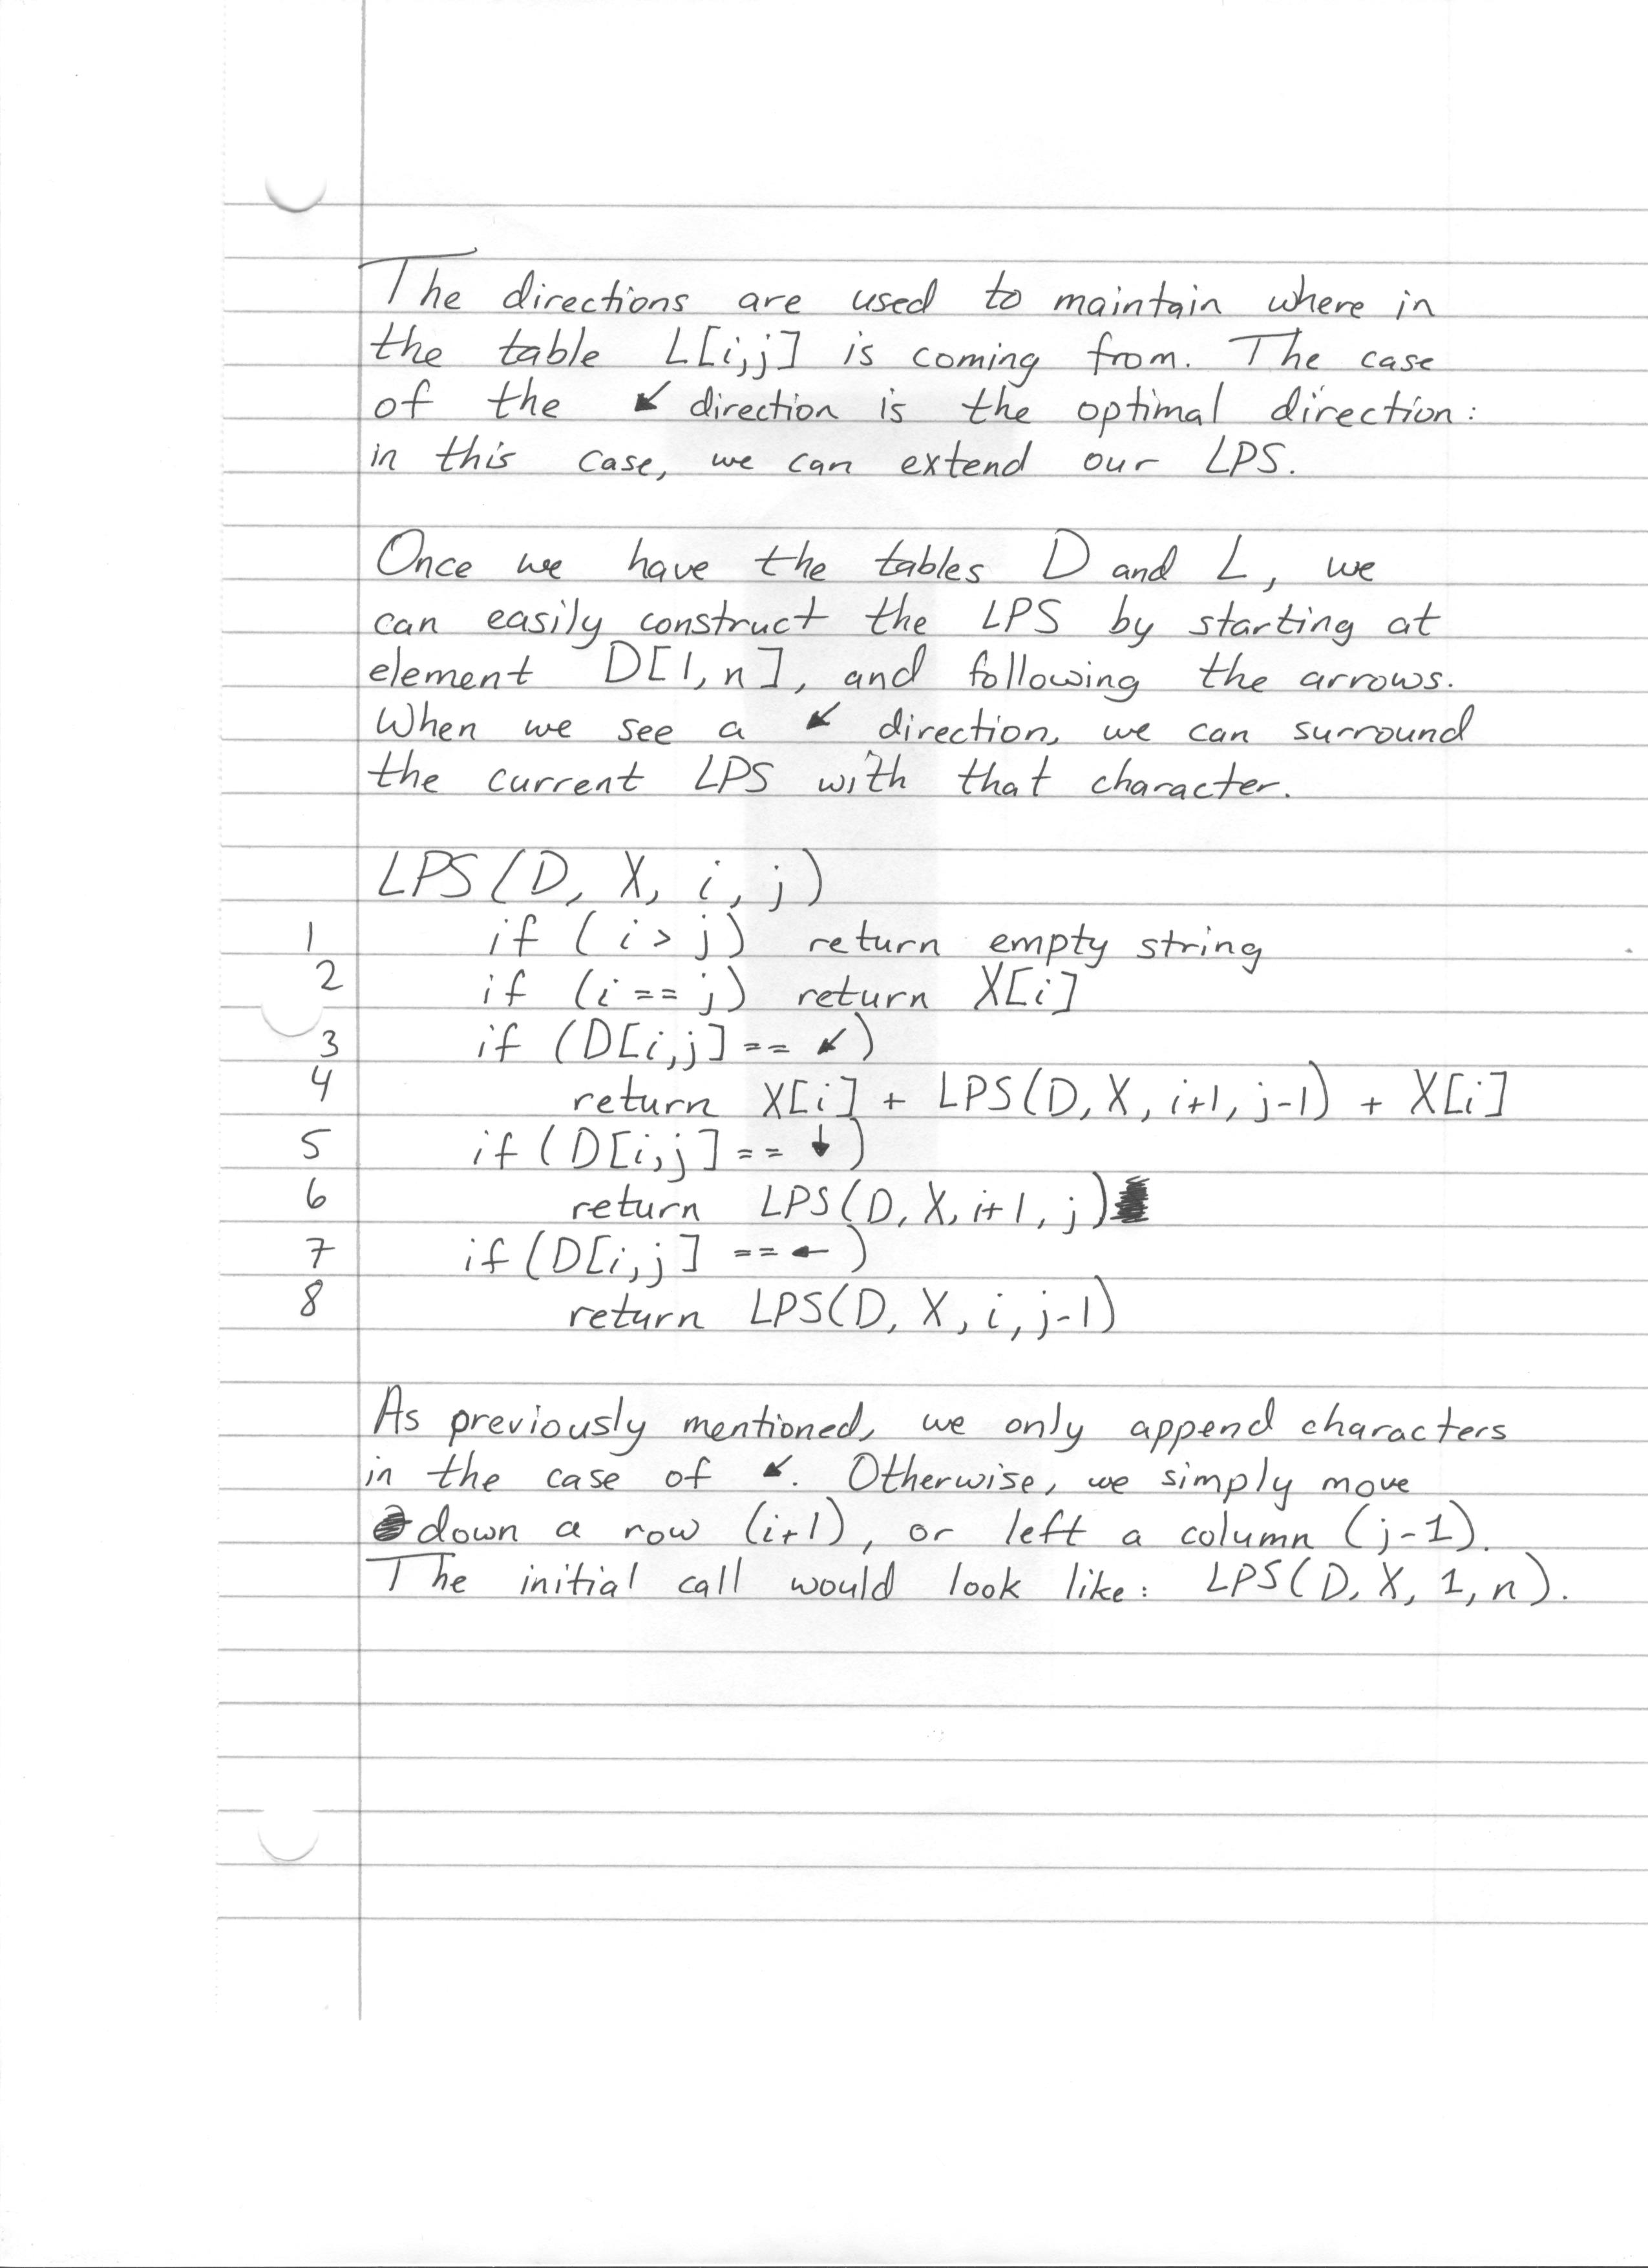 The directions are used to maintain where in
the table L[i,j] is coming from. The case
of the ↙ direction is the optimal direction:
in this case, we can extend our LPS.
Once we have the tables D and L, we
can easily construct the LPS by starting at
element D[1,n], and following the arrows.
When we see a ↙ direction, we can surround
the current LPS with that character.
LPS(D, X, i, j)
1 if (i > j) return empty string
2 if (i == j) return X[i]
3 if (D[i,j] == ↙)
4 return X[i] + LPS(D, X, i+1, j-1) + X[i]
5 if (D[i,j] == ↓)
6 return LPS(D, X, i+1, j)
7 if (D[i,j] == ←)
8 return LPS(D, X, i, j-1)
As previously mentioned, we only append characters
in the case of ↙. Otherwise, we simply move
down a row (i+1), or left a column (j-1).
The initial call would look like: LPS(D, X, 1, n).